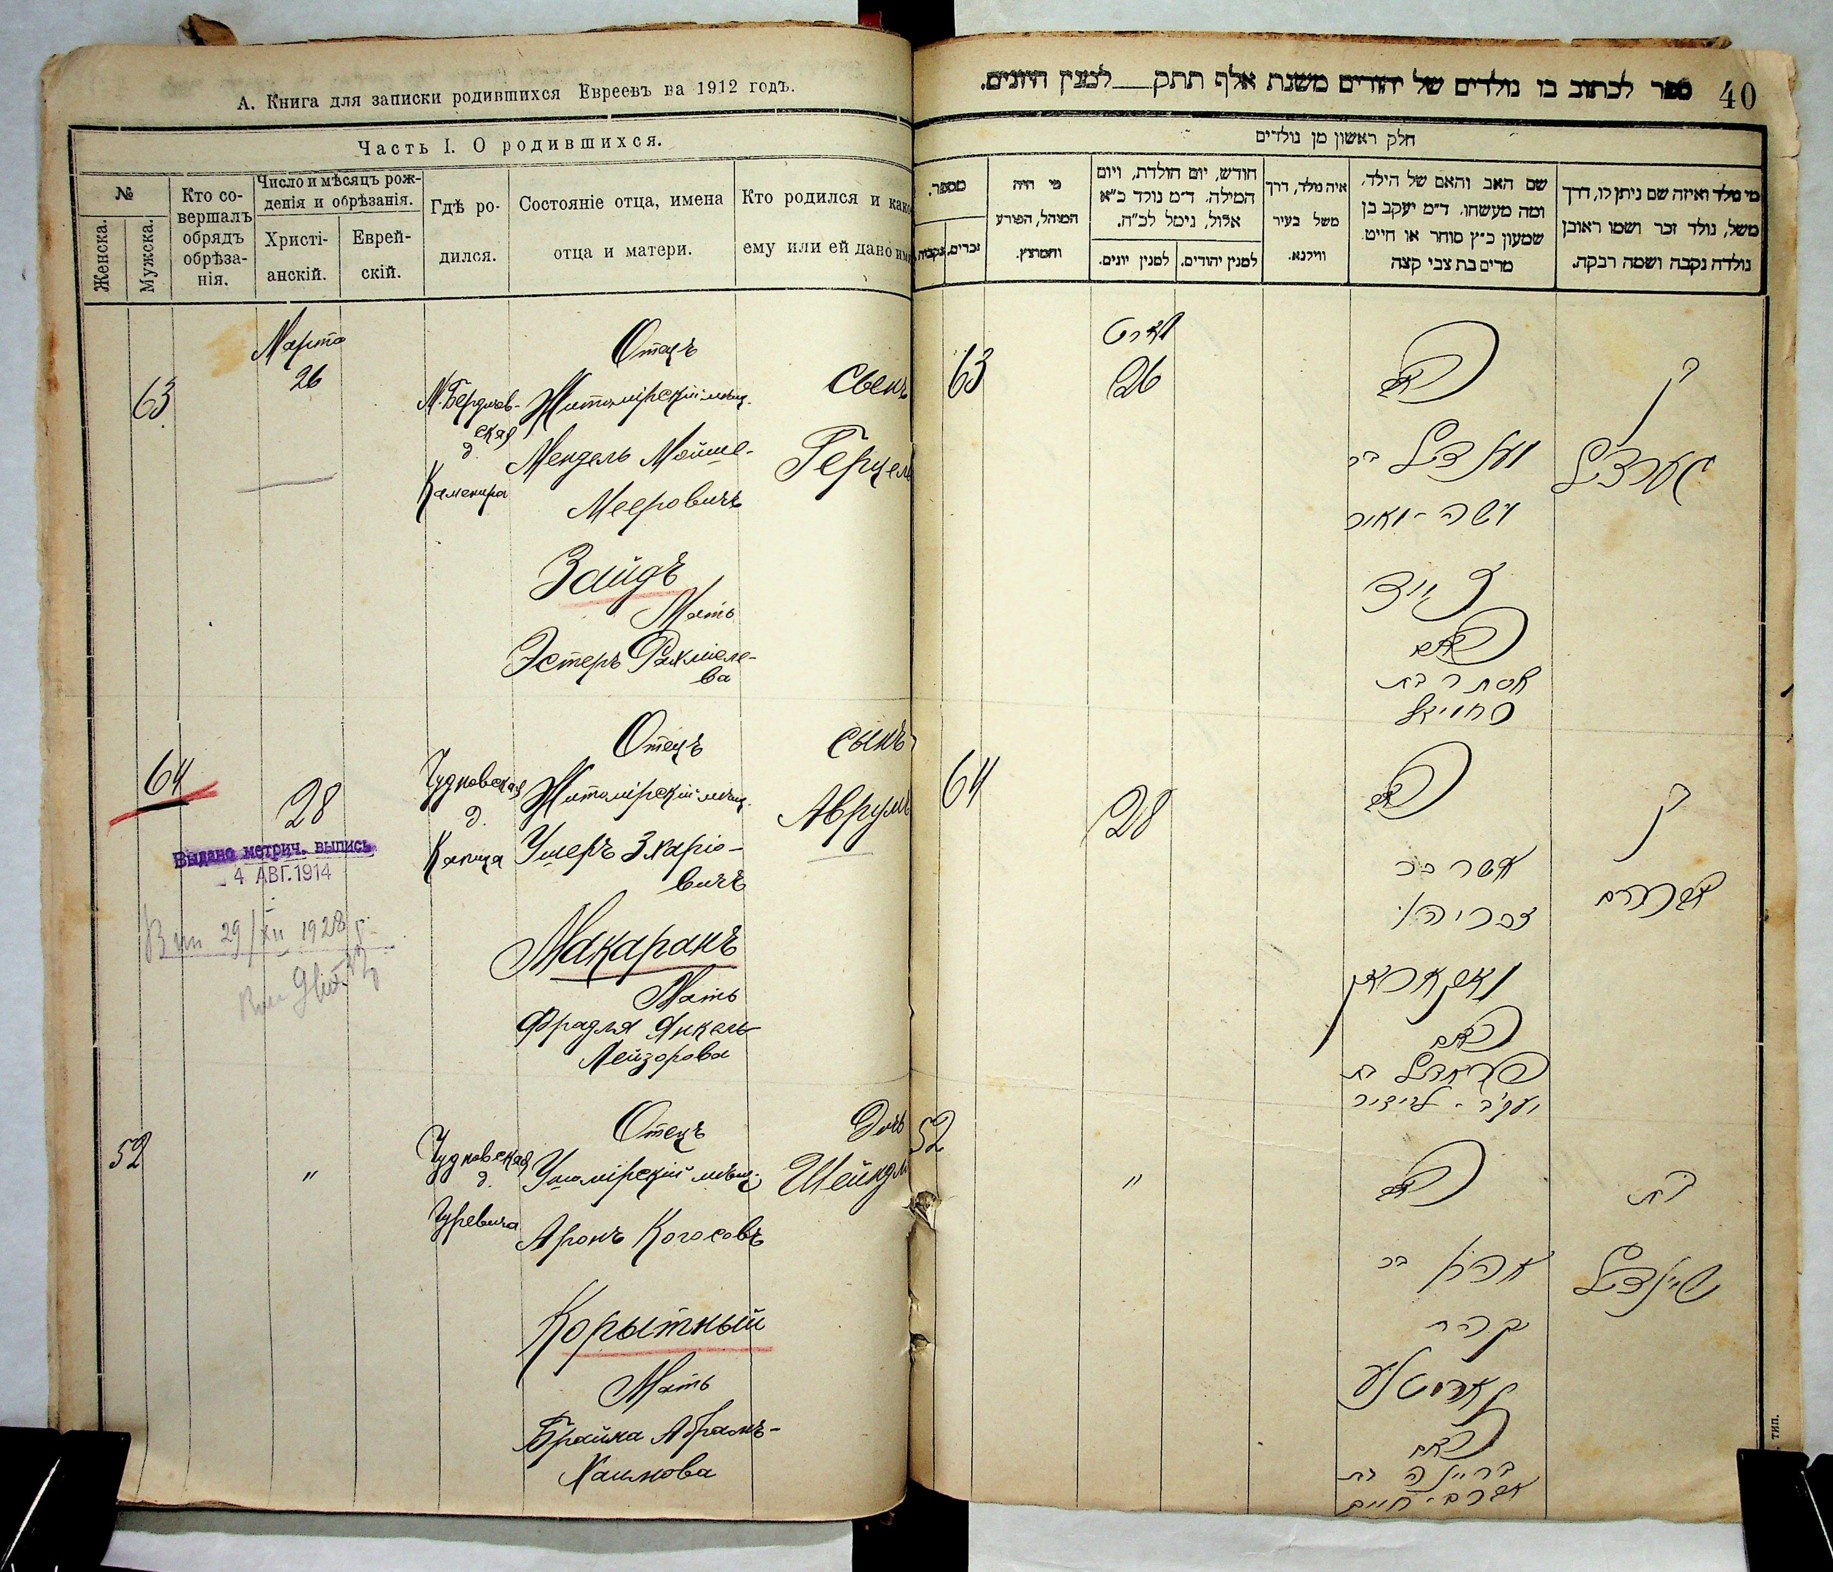 А. Книга для записки родившихся Евреевъ на 1912 годъ.
Часть I. О родившихся.
№
Женска.
Мужска.
Кто со-
вершалъ
обрядъ
обрѣза-
нія.
Число и мѣсяцъ рож-
денія и обрѣзанія.
Христі-
анскій.
Еврей-
скій.
Гдѣ ро-
дился.
Состояніе отца, имена
отца и матери.
Кто родился и како
ему или ей дано имя
Марта
63
26
М. Бердичев-
ская
д.
Каменира
Отецъ
Житомірскій мѣщ.
Мендель Мойше-
Мееровичъ
Зайдъ
Мать
Эстеръ Рахміеле-
ва
Сынъ
Герцель
64
28
Выдана метрич. выпись
4 АВГ. 1914
29/XII 1928 г.
Чудновская
д.
Капица
Отецъ
Житомірскій мѣщ.
Ушеръ Зхаріо-
вичъ
Макаранъ
Мать
Фрадля Янкель-
Лейзорова
сынъ
Аврумъ
52
"
Чудновская
д.
Гуревича
Отецъ
Ушомірскій мѣщ.
Аронъ Когосовъ
Корытный
Мать
Брайна Абрамъ-
Хаимова
Дочь
Шейндл
ספר לכתוב בו נולדים של יהודים משנת אלף תתק___למנין היונים.
40
חלק ראשון מן נולדים
מספר.
זכרים.
נקבות
מי היה
המוהל, הפורע
והמוצץ.
חודש, יום הולדת, ויום
המילה. ד״מ נולד כ״א
אלול, נימל לכ״ח.
למנין יונים.
למנין יהודים.
איה נולד, דרך
משל בעיר
ווילנא.
שם האב והאם של הילד,
ומה מעשהו. ד״מ יעקב בן
שמעון כ״ץ סוחר או חייט.
מרים בת צבי קצה
מי נולד ואיזה שם ניתן לו, דרך
משל, נולד זכר ושמו ראובן
נולדה נקבה ושמה רבקה.
63
מארט
26
האב
מענדיל בר
משה-מאיר
זייד
האם
אסתר בת
רחמיאל
בן
הערציל
64
28
האב
אשר בר
זכריהו
מאקאראן
האם
פראדיל בת
יעקב-לייזער
בן
אברהם
52
"
האב
אהרן בר
קהת
קאריטנע
האם
בריינה בת
אברהם-חיים
בת
שיינדיל
. тип.